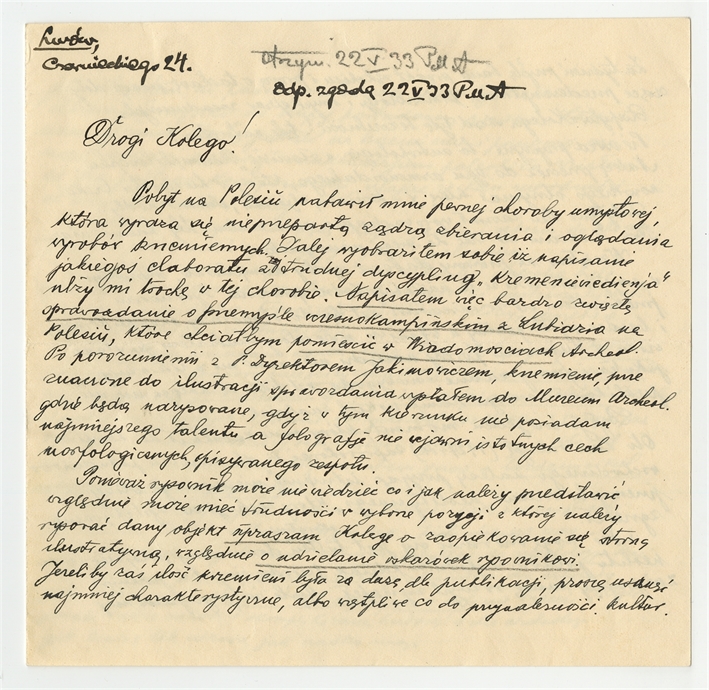 Lwów,
Czarnieckiego 24.
otrzym. 22 V 33 PMA
odp. zgodą 22 V 33 PMA
Drogi Kolego!
Pobyt na Polesiu nabawił mnie pewnej choroby umysłowej,
która wyraża się nieprzepartą żądzą zbierania i oglądania
wyrobów krzemiennych. Dalej wyobraziłem sobie iż napisanie
jakiegoś elaboratu z trudnej dyscypliny „kremenieviedienja"
ulży mi trochę w tej chorobie. Napisałem więc bardzo zwięzłe
sprawozdanie o przemyśle wczesnokampińskim z Lubiazia na
Polesiu, które chciałbym pomieścić w Wiadomościach Archeol.
Po porozumieniu z P. Dyrektorem Jakimowiczem, krzemienie, prze
znaczone do ilustracji sprawozdania wysłałem do Muzeum Archeol.
gdzie będą narysowane, gdyż w tym kierunku nie posiadam
najmniejszego talentu a fotografje nie ujawni istotnych cech
morfologicznych, opisywanego zespołu.
Ponieważ rysownik może nie wiedzieć co i jak należy przedstawić
względnie może mieć trudności w wyborze pozycji z której należy
rysować dany objekt upraszam Kolegę o zaopiekowanie się stroną
ilustratywną, względnie o udzielanie wskazówek rysownikowi.
Jeżeliby zaś ilość krzemieni była za dużą dla publikacji, proszę usunąć
najmniej charakterystyczne, albo wątpliwe co do przynależności kultur.